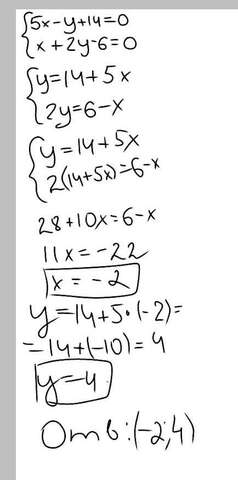 5x-y+14=0
x+2y-6=0
y=14+5x
2y=6-x
y=14+5x
2(14+5x)=6-x
28+10x=6-x
11x=-22
x=-2
y=14+5·(-2)=
=14+(-10)=4
y=4
Отв:(-2;4)